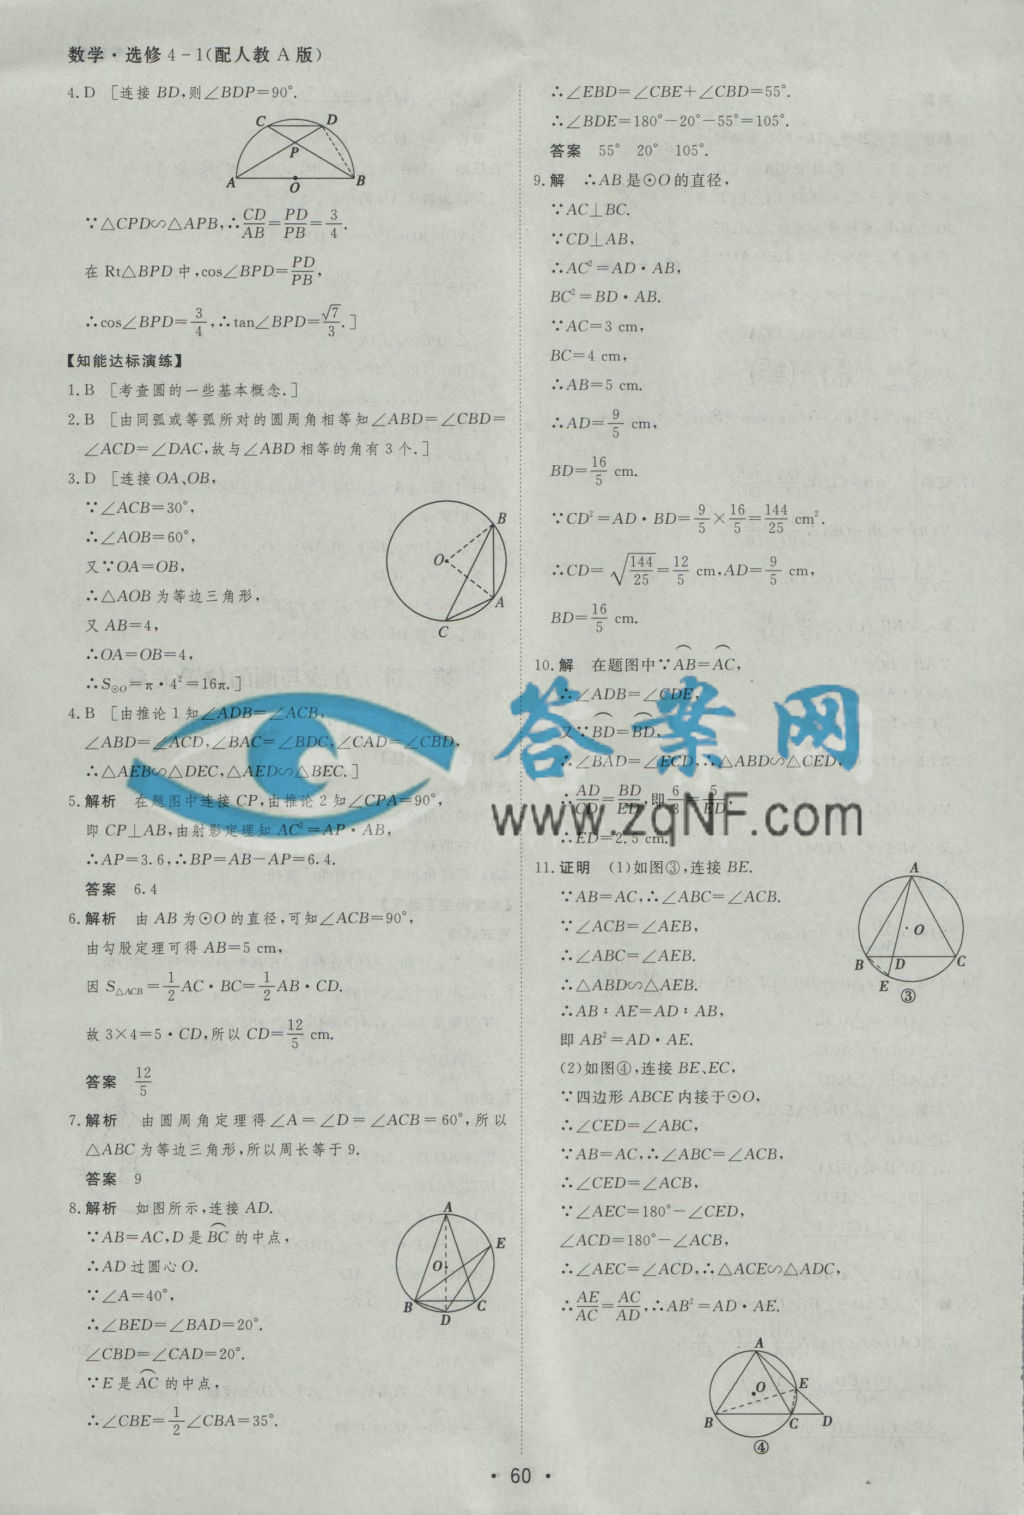 数学·选修 4-1(配人教 A 版)
4. D [连接 BD,则∠BDP=90°.
C D
P
A O B
∵△CPD∽△APB,∴CD/AB=PD/PB=3/4.
在 Rt△BPD 中,cos∠BPD=PD/PB,
∴cos∠BPD=3/4,∴tan∠BPD=√7/3.]
【知能达标演练】
1. B [考查圆的一些基本概念.]
2. B [由同弧或等弧所对的圆周角相等知∠ABD=∠CBD=
∠ACD=∠DAC,故与∠ABD 相等的角有 3 个.]
3. D [连接 OA、OB,
∵∠ACB=30°,
∴∠AOB=60°,
又∵OA=OB,
∴△AOB 为等边三角形,
又 AB=4,
∴OA=OB=4,
∴S⊙O=π·4²=16π.]
B
O
A
C
4. B [由推论 1 知∠ADB=∠ACB,
∠ABD=∠ACD,∠BAC=∠BDC,∠CAD=∠CBD,
∴△AEB∽△DEC,△AED∽△BEC.]
5. 解析 在题图中连接 CP,由推论 2 知∠CPA=90°,
即 CP⊥AB,由射影定理知 AC²=AP·AB,
∴AP=3.6,∴BP=AB-AP=6.4.
答案 6.4
6. 解析 由 AB 为⊙O 的直径,可知∠ACB=90°,
由勾股定理可得 AB=5 cm,
因 S△ACB=1/2 AC·BC=1/2 AB·CD.
故 3×4=5·CD,所以 CD=12/5 cm.
答案 12/5
7. 解析 由圆周角定理得∠A=∠D=∠ACB=60°,所以
△ABC 为等边三角形,所以周长等于 9.
答案 9
8. 解析 如图所示,连接 AD.
∵AB=AC,D 是 BC⌒ 的中点,
∴AD 过圆心 O.
∵∠A=40°,
∴∠BED=∠BAD=20°.
∠CBD=∠CAD=20°.
∵E 是 AC⌒ 的中点,
∴∠CBE=1/2∠CBA=35°.
A
E
O
B C
D
∴∠EBD=∠CBE+∠CBD=55°.
∴∠BDE=180°-20°-55°=105°.
答案 55° 20° 105°.
9. 解 ∴AB 是⊙O 的直径,
∵AC⊥BC.
∵CD⊥AB,
∴AC²=AD·AB,
BC²=BD·AB.
∵AC=3 cm,
BC=4 cm,
∴AB=5 cm.
∴AD=9/5 cm,
BD=16/5 cm.
∵CD²=AD·BD=9/5×16/5=144/25 cm².
∴CD=√(144/25)=12/5 cm,AD=9/5 cm,
BD=16/5 cm.
10. 解 在题图中∵AB⌒=AC⌒,
∴∠ADB=∠CDE,
又∵BD⌒=BD⌒,
∴∠BAD=∠ECD,∴△ABD∽△CED,
∴AD/CD=BD/ED,即6/3=5/ED,
∴ED=2.5 cm.
11. 证明 (1)如图③,连接 BE.
∵AB=AC,∴∠ABC=∠ACB.
∵∠ACB=∠AEB,
∴∠ABC=∠AEB.
∴△ABD∽△AEB.
∴AB∶AE=AD∶AB,
即 AB²=AD·AE.
A
O
B D C
E
③
(2)如图④,连接 BE、EC,
∵四边形 ABCE 内接于⊙O,
∴∠CED=∠ABC,
∵AB=AC,∴∠ABC=∠ACB,
∴∠CED=∠ACB,
∵∠AEC=180°-∠CED,
∠ACD=180°-∠ACB,
∴∠AEC=∠ACD,∴△ACE∽△ADC,
∴AE/AC=AC/AD,∴AB²=AD·AE.
A
O E
B C D
④
答案网
www.zqNF.com
· 60 ·